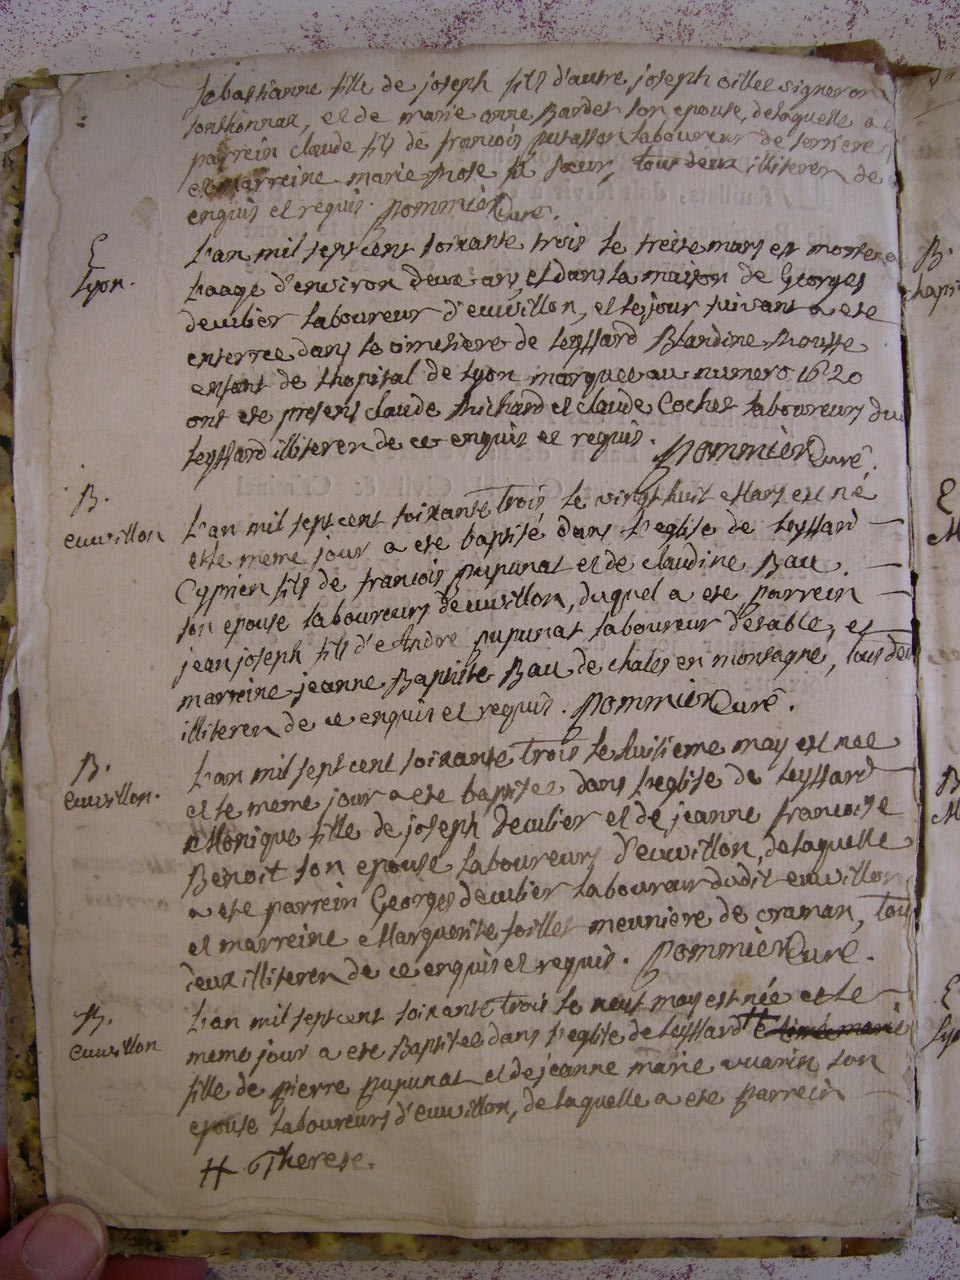 sebastianne fille de joseph fils d'autre joseph oillet vigneron
sonthonnax, et de marie anne Bardet son epouse, de laquelle a e
parrein claude fils de francois putassou laboureur de serriere
et marreine marie Rose sa sœur, tout deux illiteren de
enquis et requis. pommier Curé.
E
Lyon.
L'an mil sept cent soixante trois le treise mars est morte a
L'aage d'environ deux ans et dans la maison de Georges
decubier laboureur d'euvillon, et le jour suivant a ete
enterree dans le cimetiere de Leyssard Blandine Rousse
enfant de l'hopital de Lyon marquee au numero 1620
ont ete presens claude michard et claude Cochet laboureurs du
Leyssard illiteren de ce enquis et requis. pommier Curé.
B.
euvillon
L'an mil sept cent soixante trois le vingt huit Mars est né
et le meme jour a ete baptisé dans l'eglise de Leyssard
Cyprien fils de francois pupunat et de claudine Bau
son epouse laboureurs d'euvillon, duquel a ete parrein
jean joseph fils d'Andre pupunat laboureur d'etable, et
marreine jeanne Baptiste Bau de chales en montagne, tous deu
illiteren de ce enquis et requis. pommier Curé.
B.
euvillon.
L'an mil sept cent soixante trois le huitieme may est nee
et le meme jour a ete baptisee dans l'eglise de Leyssard
Monique fille de joseph decubier et de jeanne francoise
Benoit son epouse laboureurs d'euvillon, de laquelle
a ete parrein Georges decubier laboureur dudit euvillon
et marreine Marguerite foillet meuniere de craman, tous
deux illiteren de ce enquis et requis. pommier Curé.
B.
euvillon
L'an mil sept cent soixante trois le neuf may est née et le
meme jour a ete Baptisee dans l'eglise de Leyssard # marie
fille de pierre pupunat et de jeanne marie vuarin son
epouse laboureurs d'euvillon, de laquelle a ete parrein
# Therese.
B.
chapi
E
M
B
M
E
Ly